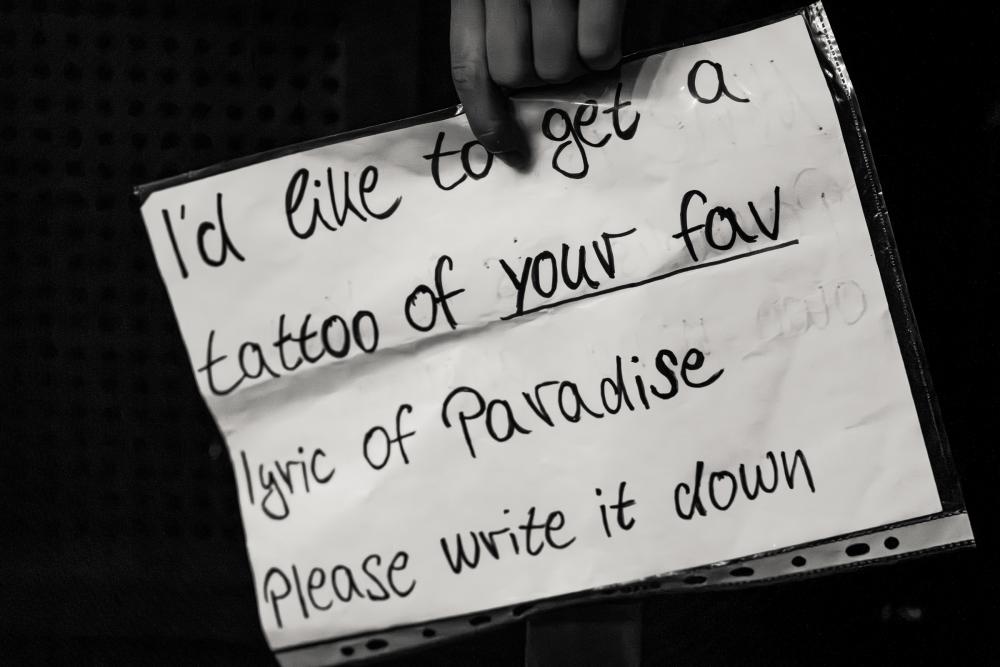 I'd like to get a
tattoo of your fav
lyric of Paradise
Please write it down